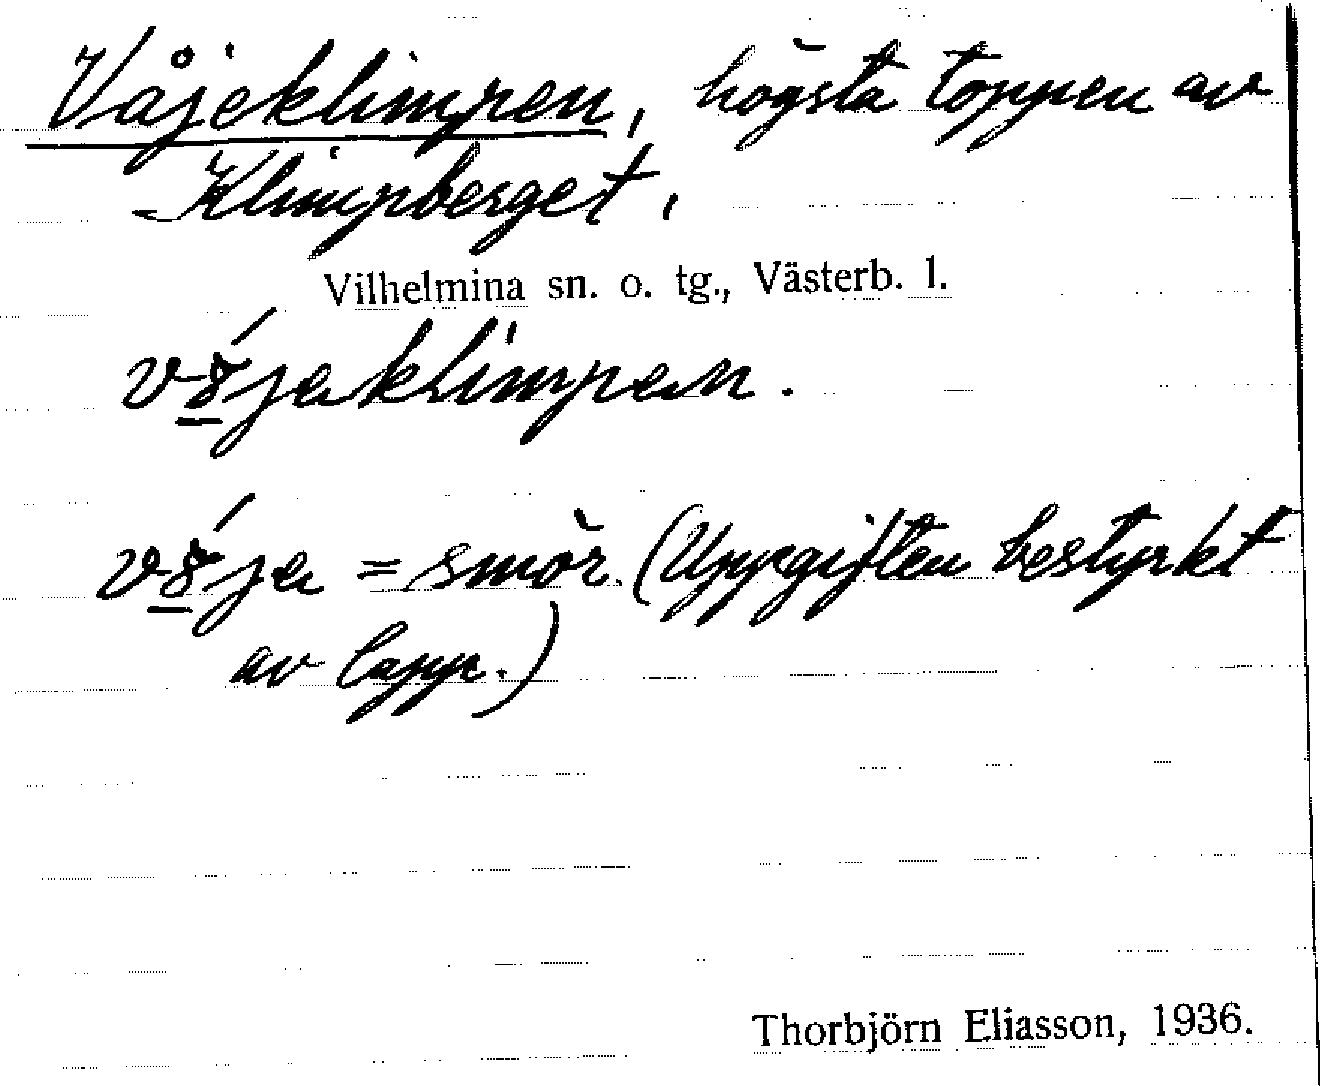 Våjeklimpen, högsta toppen av
Klimpberget,
Vilhelmina sn. o. tg., Västerb. l.
= smör. (Uppgiften bestyrkt
av lapp.)
Thorbjörn Eliasson, 1936.